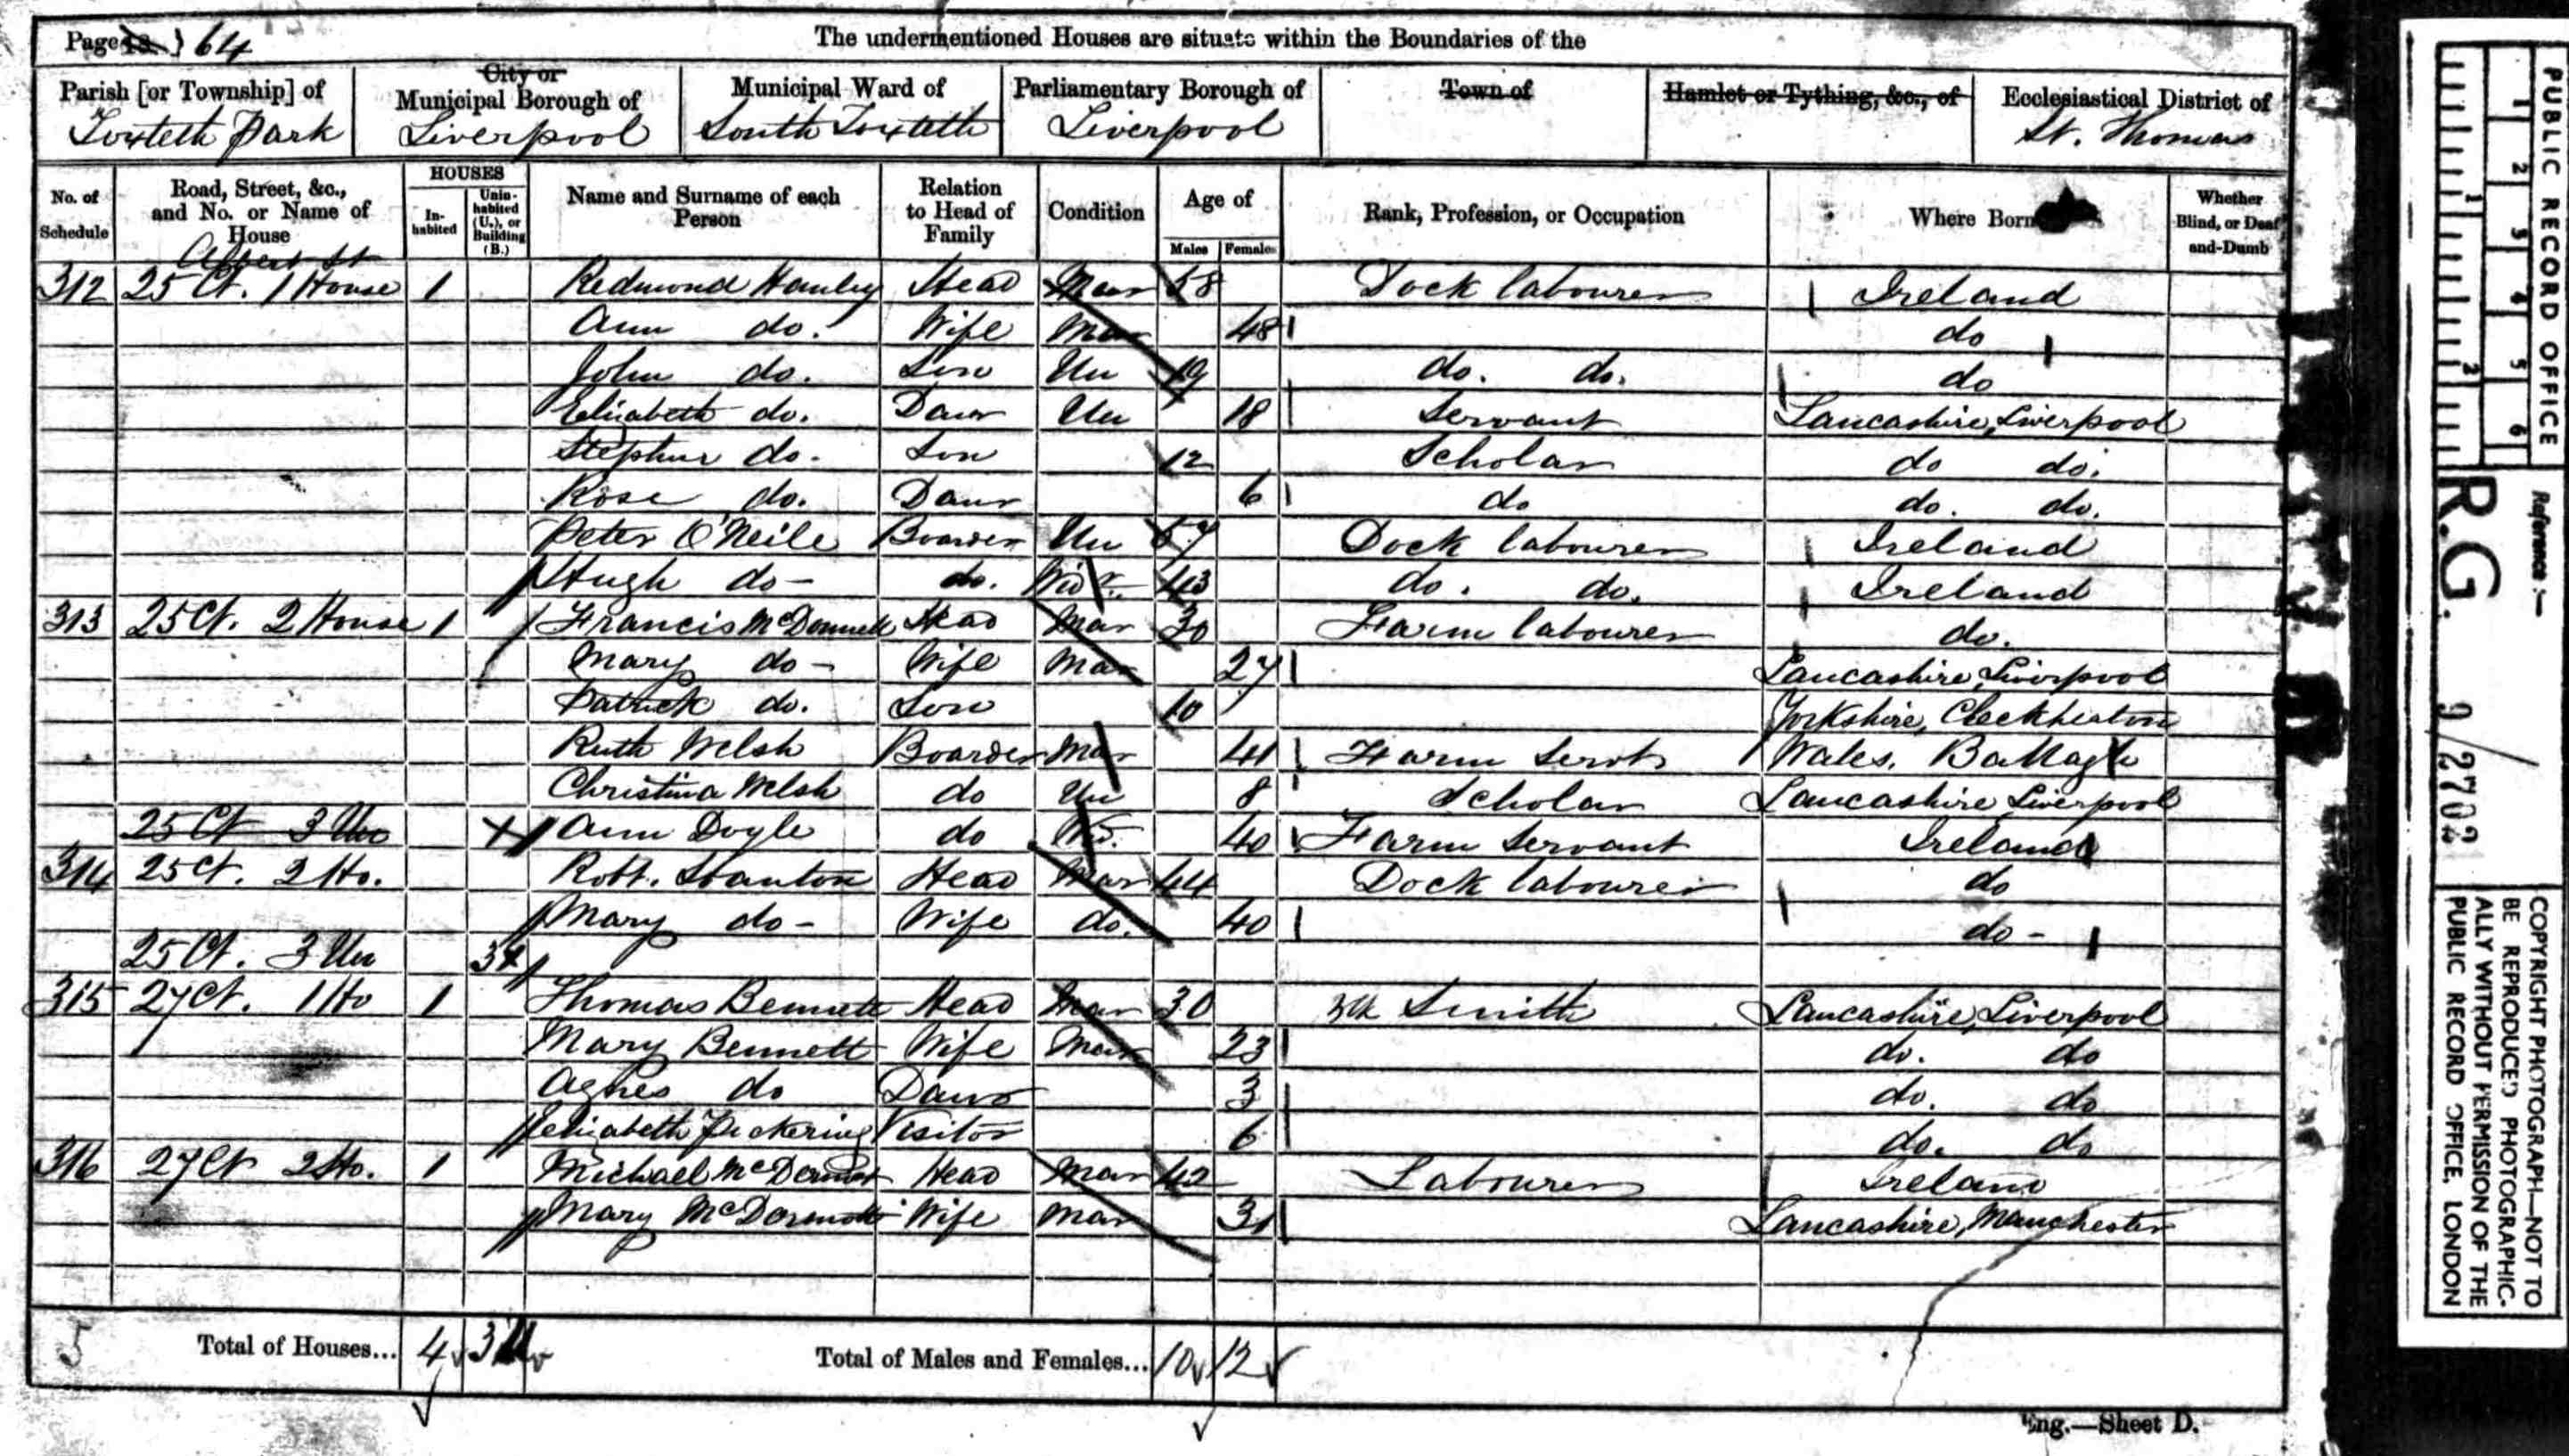 Page 13 64
The undermentioned Houses are situate within the Boundaries of the
Parish [or Township] of Toxteth Park
City or Municipal Borough of Liverpool
Municipal Ward of South Toxteth
Parliamentary Borough of Liverpool
Town of
Hamlet or Tything, &c., of
Ecclesiastical District of St. Thomas
No. of Schedule
Road, Street, &c., and No. or Name of House
HOUSES
In-habited
Unin-habited (U.), or Building (B.)
Name and Surname of each Person
Relation to Head of Family
Condition
Age of
Males Females
Rank, Profession, or Occupation
Where Born
Whether Blind, or Deaf-and-Dumb
Albert St
312 25 Ct. 1 House 1 Redmond Hanley Head Mar 58 Dock labourer Ireland
Ann do. Wife Mar 48 do
John do. Son Un 19 do. do. do
Elizabeth do. Daur Un 18 Servant Lancashire, Liverpool
Stephen do. Son 12 Scholar do do.
Rose do. Daur 6 do do. do.
Peter O'Neile Boarder Un 57 Dock labourer Ireland
Hugh do - do. Widr. 43 do. do. Ireland
313 25 Ct. 2 House 1 Francis McDonnell Head Mar 30 Farm labourer do.
Mary do - Wife Mar 27 Lancashire, Liverpool
Patrick do. Son 10 Yorkshire, Cleckheaton
Ruth Welsh Boarder Mar 41 Farm Servt Wales,
Christina Welsh do Un 8 Scholar Lancashire Liverpool
25 Ct 3 Un Ann Doyle do Wd. 40 Farm Servant Ireland
314 25 Ct. 2 Ho. Robt. Stanton Head Mar 44 Dock labourer do
Mary do - Wife do. 40 do -
25 Ct. 3 Un 3
315 27 Ct. 1 Ho 1 Thomas Bennett Head Mar 30 Smith Lancashire, Liverpool
Mary Bennett Wife Mar 23 do. do
Agnes do Daur 3 do. do
Elizabeth Pickering Visitor 6 do. do
316 27 Ct 2 Ho. 1 Michael McDermot Head Mar 42 Labourer Ireland
Mary McDermott Wife Mar 31 Lancashire, Manchester
5 Total of Houses... 4 3 Total of Males and Females... 10 12
Eng.—Sheet D.
PUBLIC RECORD OFFICE
1 2 3 4 5 6
1 2
Reference :—
R.G. 9/2702
COPYRIGHT PHOTOGRAPH—NOT TO BE REPRODUCED PHOTOGRAPHIC-ALLY WITHOUT PERMISSION OF THE PUBLIC RECORD OFFICE, LONDON